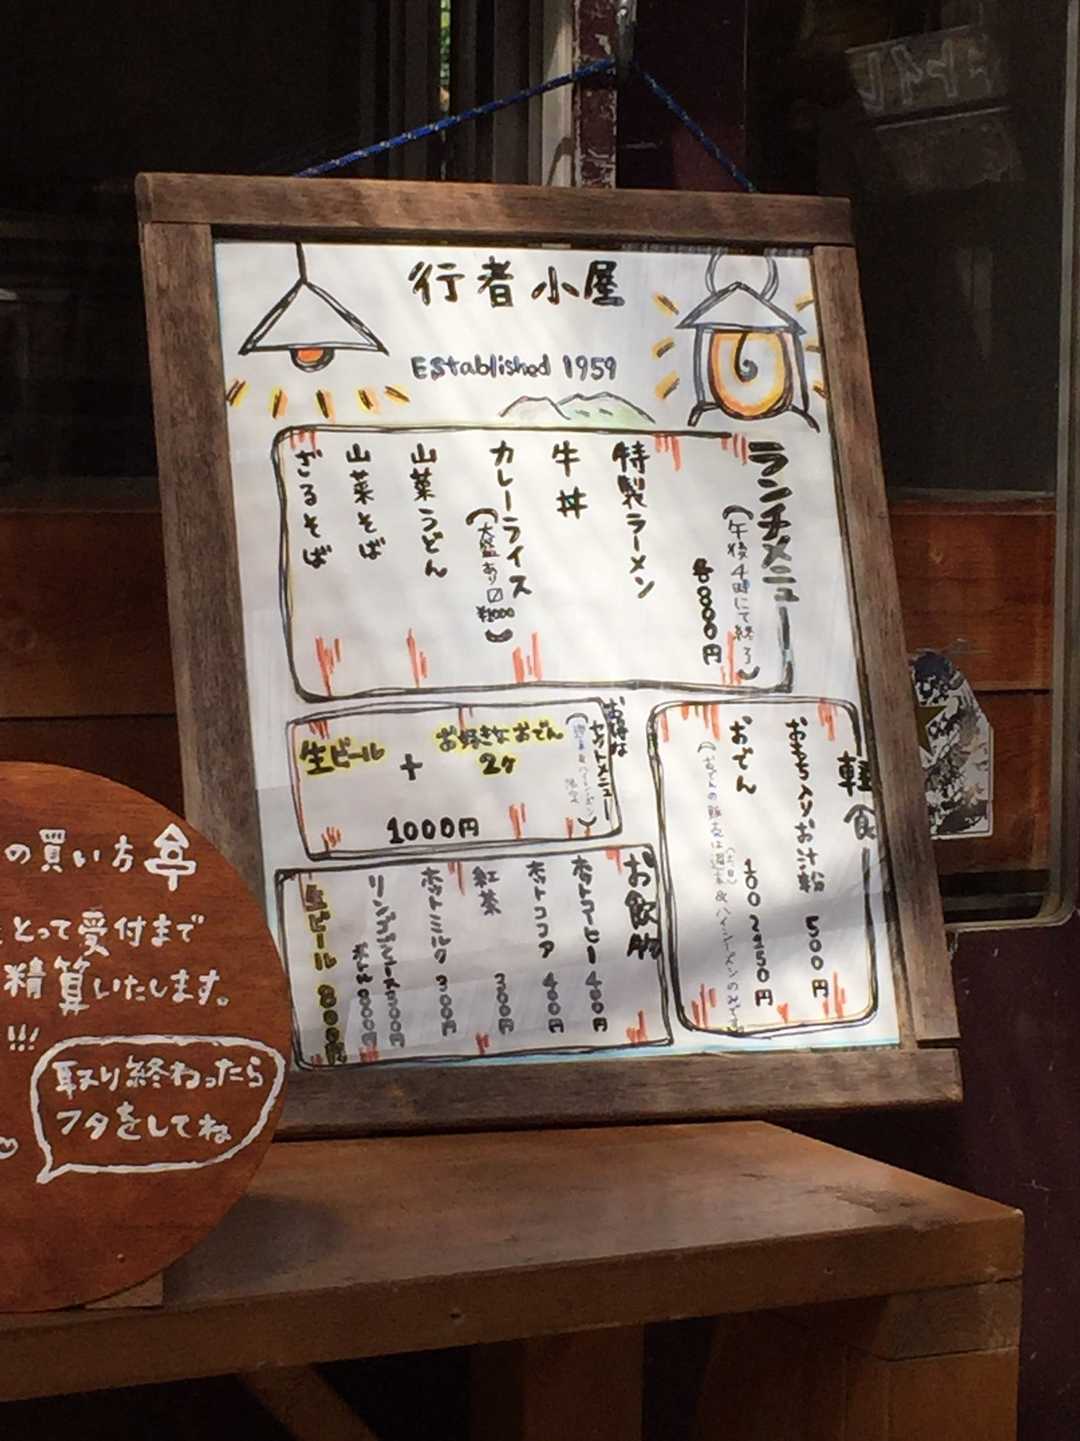 行者小屋
Established 1959
ランチメニュー
(午後4時にて終了)
各800円
特製ラーメン
牛丼
カレーライス
(大盛あり
¥1000)
山菜うどん
山菜そば
ざるそば
軽食
おもち入りお汁粉 500円
おでん 100 250円
(おでんの販売は週末&ハイシーズンのみです)
お得な
セットメニュー
(週末&ハイシーズン
限定)
お好きなおでん
2ケ
+
生ビール
1000円
お飲物
ホットコーヒー 400円
ホットココア 400円
紅茶 300円
ホットミルク 300円
リンゴジュース300円
ボトル
生ビール 800円
の買い方
とって受付まで
精算いたします。
!!!
取り終わったら
フタをしてね